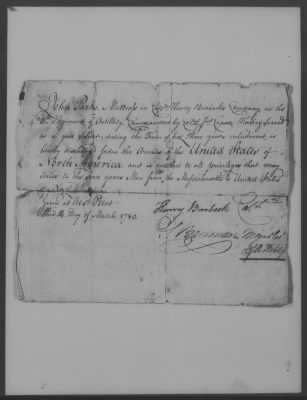 John Parks, Mattross in Capt. Henry Burbecks Company, in the
Regiment of Artillery Commanded by Colo. Jno. Crane, Having served
as a good Soldier, during the Term of his Three years enlistment, is
hereby discharged from the Armies of the United States of
North America and is entitled to all priviledges that may
Arise to Three years Men from the Massachusetts or United States
Given at West Point
Day of March 1780
Henry Burbeck Capt.